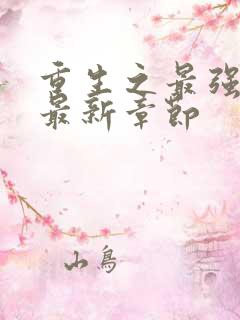 重生之最强
最新章节
山鸟